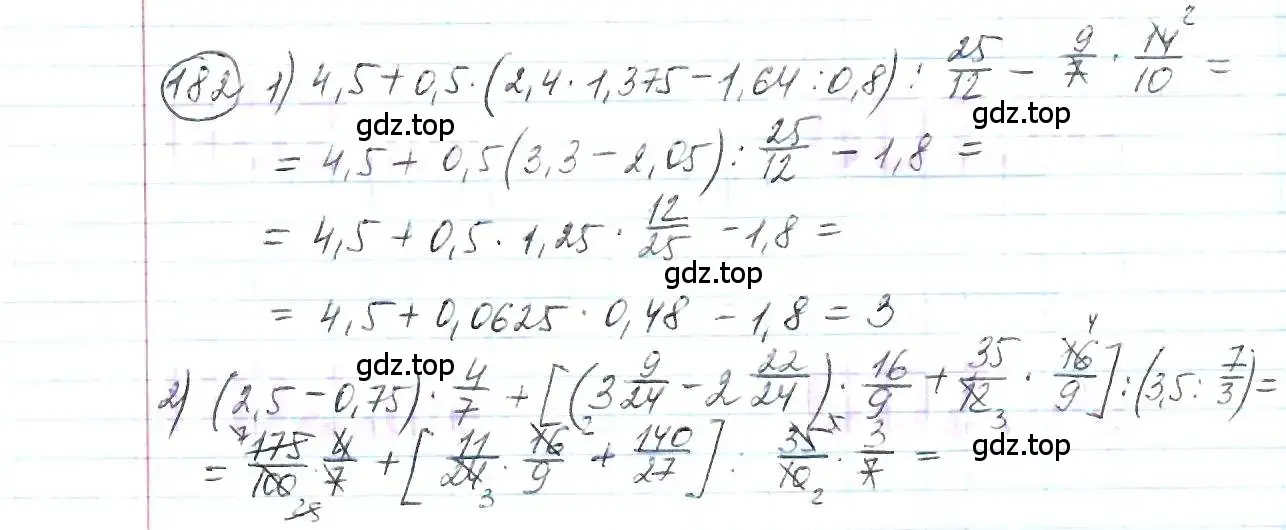 182 1) 4,5 + 0,5 · (2,4 · 1,375 − 1,64 : 0,8) : 25/12 − 9/7 · 14/10 2 =
gdz.top gdz.top
= 4,5 + 0,5 (3,3 − 2,05) : 25/12 − 1,8 =
= 4,5 + 0,5 · 1,25 · 12/25 − 1,8 =
gdz.top
= 4,5 + 0,0625 · 0,48 − 1,8 = 3
2) (2,5 − 0,75) · 4/7 + [(3 9/24 − 2 22/24) · 16/9 + 35/12 3 · 16/9 4] : (3,5 : 7/3) =
= 7 175/100 25 · 4/7 + [11/24 3 · 16/9 2 + 140/27] : 35/10 2 5 · 3/7 =
gdz.top gdz.top